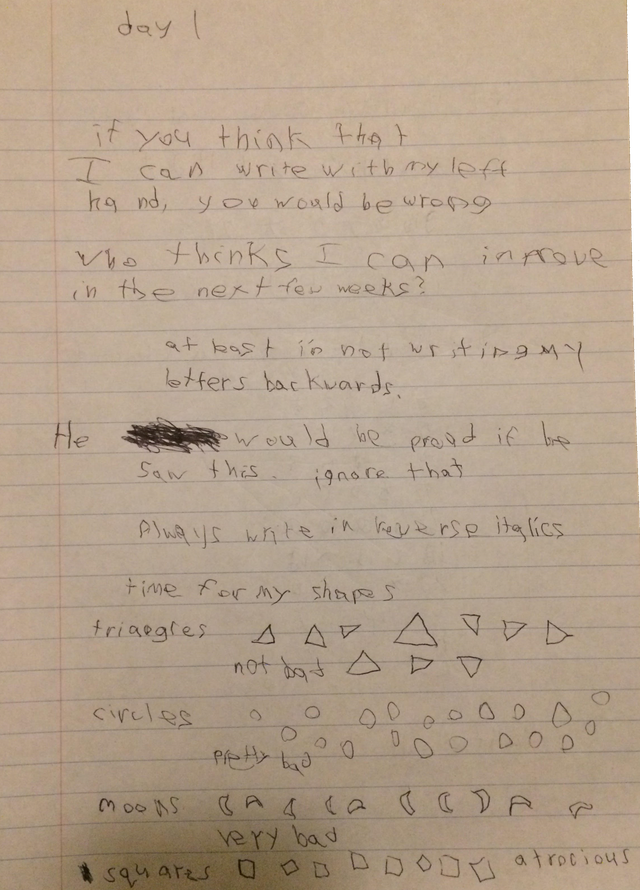 day 1
if you think that
I can write with my left
hand, you would be wrong
who thinks I can improve
in the next few weeks?
at least i'm not writing my
letters backwards.
He would be proud if he
saw this. ignore that
Always write in reverse italics
time for my shapes
triangles
not bad
circles
pretty bad
moons
very bad
squares atrocious